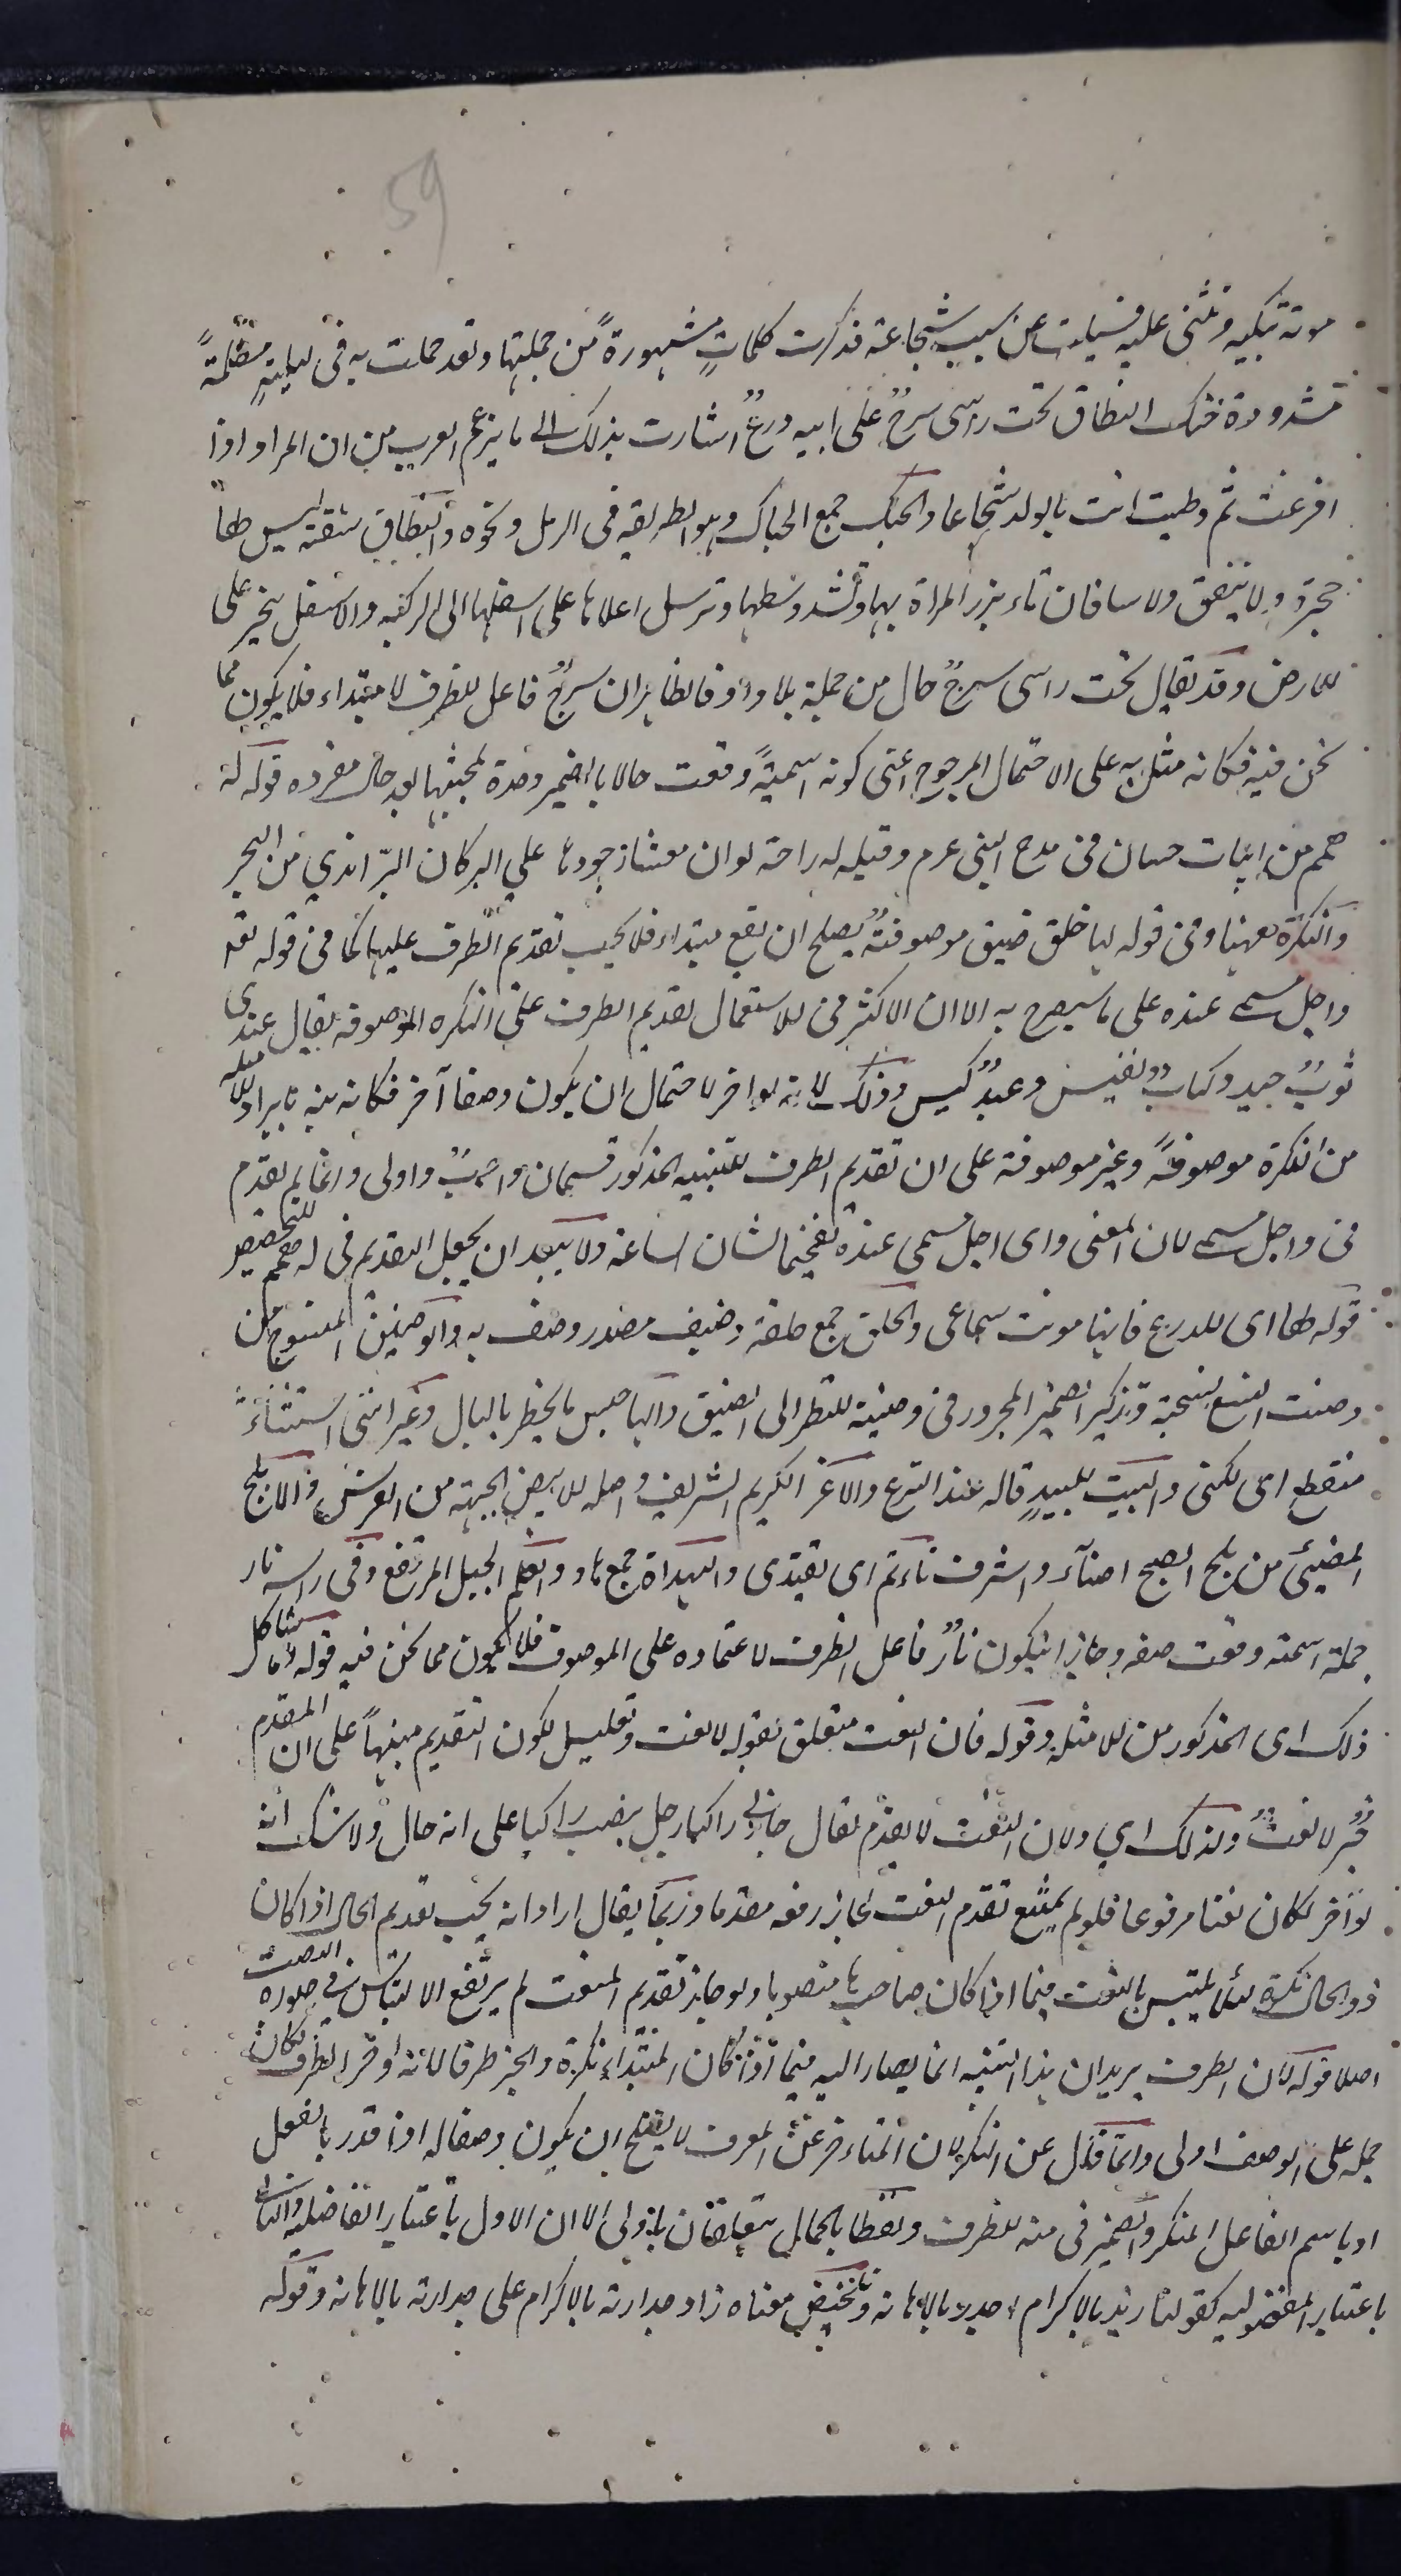 59
موته تبكيه وتثنى عليه فسيلت عن سبب شجاعته فذكرت كلماتٍ مشهورةً من جملتها وقد حملت به فى ليلةٍ مظلمةً
مشدودة حبك النطاق تحت راسى سرجٌ على ابيه درعٌ اشارت بذلك الى ما يزعم العرب من ان المراة اذا
افزعت ثم وطيت اتت بالولد شجاعا والحبك جمع الحباك وهو الطريقه فى الرمل ونحوه والنطاق شقة ليس لها
حجزة ولا نيفق ولا ساقان تاتزر المراة بها وتشد وسطها وترسل اعلاها على اسفلها الى الركبه والاسفل ينجر على
للارض وقد يقال تحت راسى سرجٌ حال من جملة بلا واو فالظاهر ان سرجٌ فاعل للظرف لا مبتداء فلا يكون مما
نحن فيه فكانه مثل به على الاحتمال المرجوح اعنى كونه اسميةً وقعت حالا بالضمير وحده لمجيئها بعد حال مفرده قوله له
همم من ابيات حسان فى مدح النبى عرم وقبله له راحة لو ان معشار جودها على البر كان البرّ اندي من البحر
والنكرة ههنا وفى قوله لها حلق ضيق موصوفةٌ يصلح ان يقع مبتداء فلا يجب تقديم الظرف عليها كما فى قوله تعه
واجل مسمى عنده على ما سيصرح به الا ان الاكثر فى الاستعمال تقديم الظرف على النكره الموصوفه يقال عندى
ثوبٌ جيد وكتابٌ نفيس وعبدٌ كيس وذلك لانه لو اخر لاحتمال ان يكون وصفا آخر فكانه نبه بايراد الامثله
من النكرة موصوفةً وغير موصوفة على ان تقديم الظرف للتنبيه المذكور قسمان واجبٌ واولى وانما لم يقدم
فى واجل مسمى لان المعنى واى اجل مسمى عنده تفخيما لشان الساعة ولا يبعد ان يجعل التقديم فى له همم للتخصيص
قوله لها اى للدرع فانها مونث سماعى والحلق جمع حلقة وضيق مصدر وصف به والوضين المنسوج من
وضنت النسع نسجته وتذكير الضمير المجرور فى وضينه للنظر الى الضيق والهاجس ما يخطر بالبال وغير اننى استثناءً
منقطع اى لكنى والبيت للبيدٍ قاله عند النزع والاغر الكريم الشريف واصله للابيض الجبهة من الفرس والابلج
المضيئ من بلج الصبح اضآء واشرف تاتم اى تقتدى والهداة جمع هاد والعلم الجبل المرتفع وفى راسه نار
جملة اسمية وقعت صفة وجاز ان يكون نارٌ فاعل الظرف لاعتماده على الموصوف فلا يكون مما نحن فيه قوله وما شاكل
ذلك اى المذكور من للامثله وقوله فان النعت متعلق بقوله لا نعت وتعليل لكون التقديم منبهاً على ان المقدم
خبرٌ لا نعتٌ ولذلك اي ولان النعت لا يقدّم يقال جاءنى راكبا رجل بنصب راكبا على انه حال ولا شك انه
لو اخر لكان نعتا مرفوعا فلو لم يمتنع تقدم النعت لجاز رفعه مقدما وربما يقال اراد انه يجب تقديم الحال اذا كان
ذو الحال نكرة لئلا يلتبس بالنعت فيما اذا كان صاحبها منصوبا ولو جاز تقديم النعت لم يرتفع الالتباس فى صورة النصب
اصلا قوله لان الظرف يريد ان هذا التنبيه انما يصار اليه فيما اذا كان المبتداء نكرة والخبر ظرفا لانه اذا اخر الظرف لكان
حمله على الوصف اولى وانما قال عن النكرة لان المتاخر عن المعرف لا يصلح ان يكون وصفا له اذا قدر بالفعل
او باسم الفاعل المنكر والضمير فى منه للظرف ولفظا بالحمال متعلقان باولى الا ان الاول باعتبار الفاضليه والثانى
باعتبار المفضوليه كقولنا زيد بالاكرام اجدر بالاهانه وتلخيص معناه زاد جدارته بالاكرام على جدارته بالاهانه وقوله